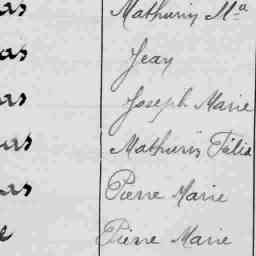 as Mathurin Mª
as Jean
as Joseph Marie
as Mathurin Félix
as Pierre Marie
e Pierre Marie